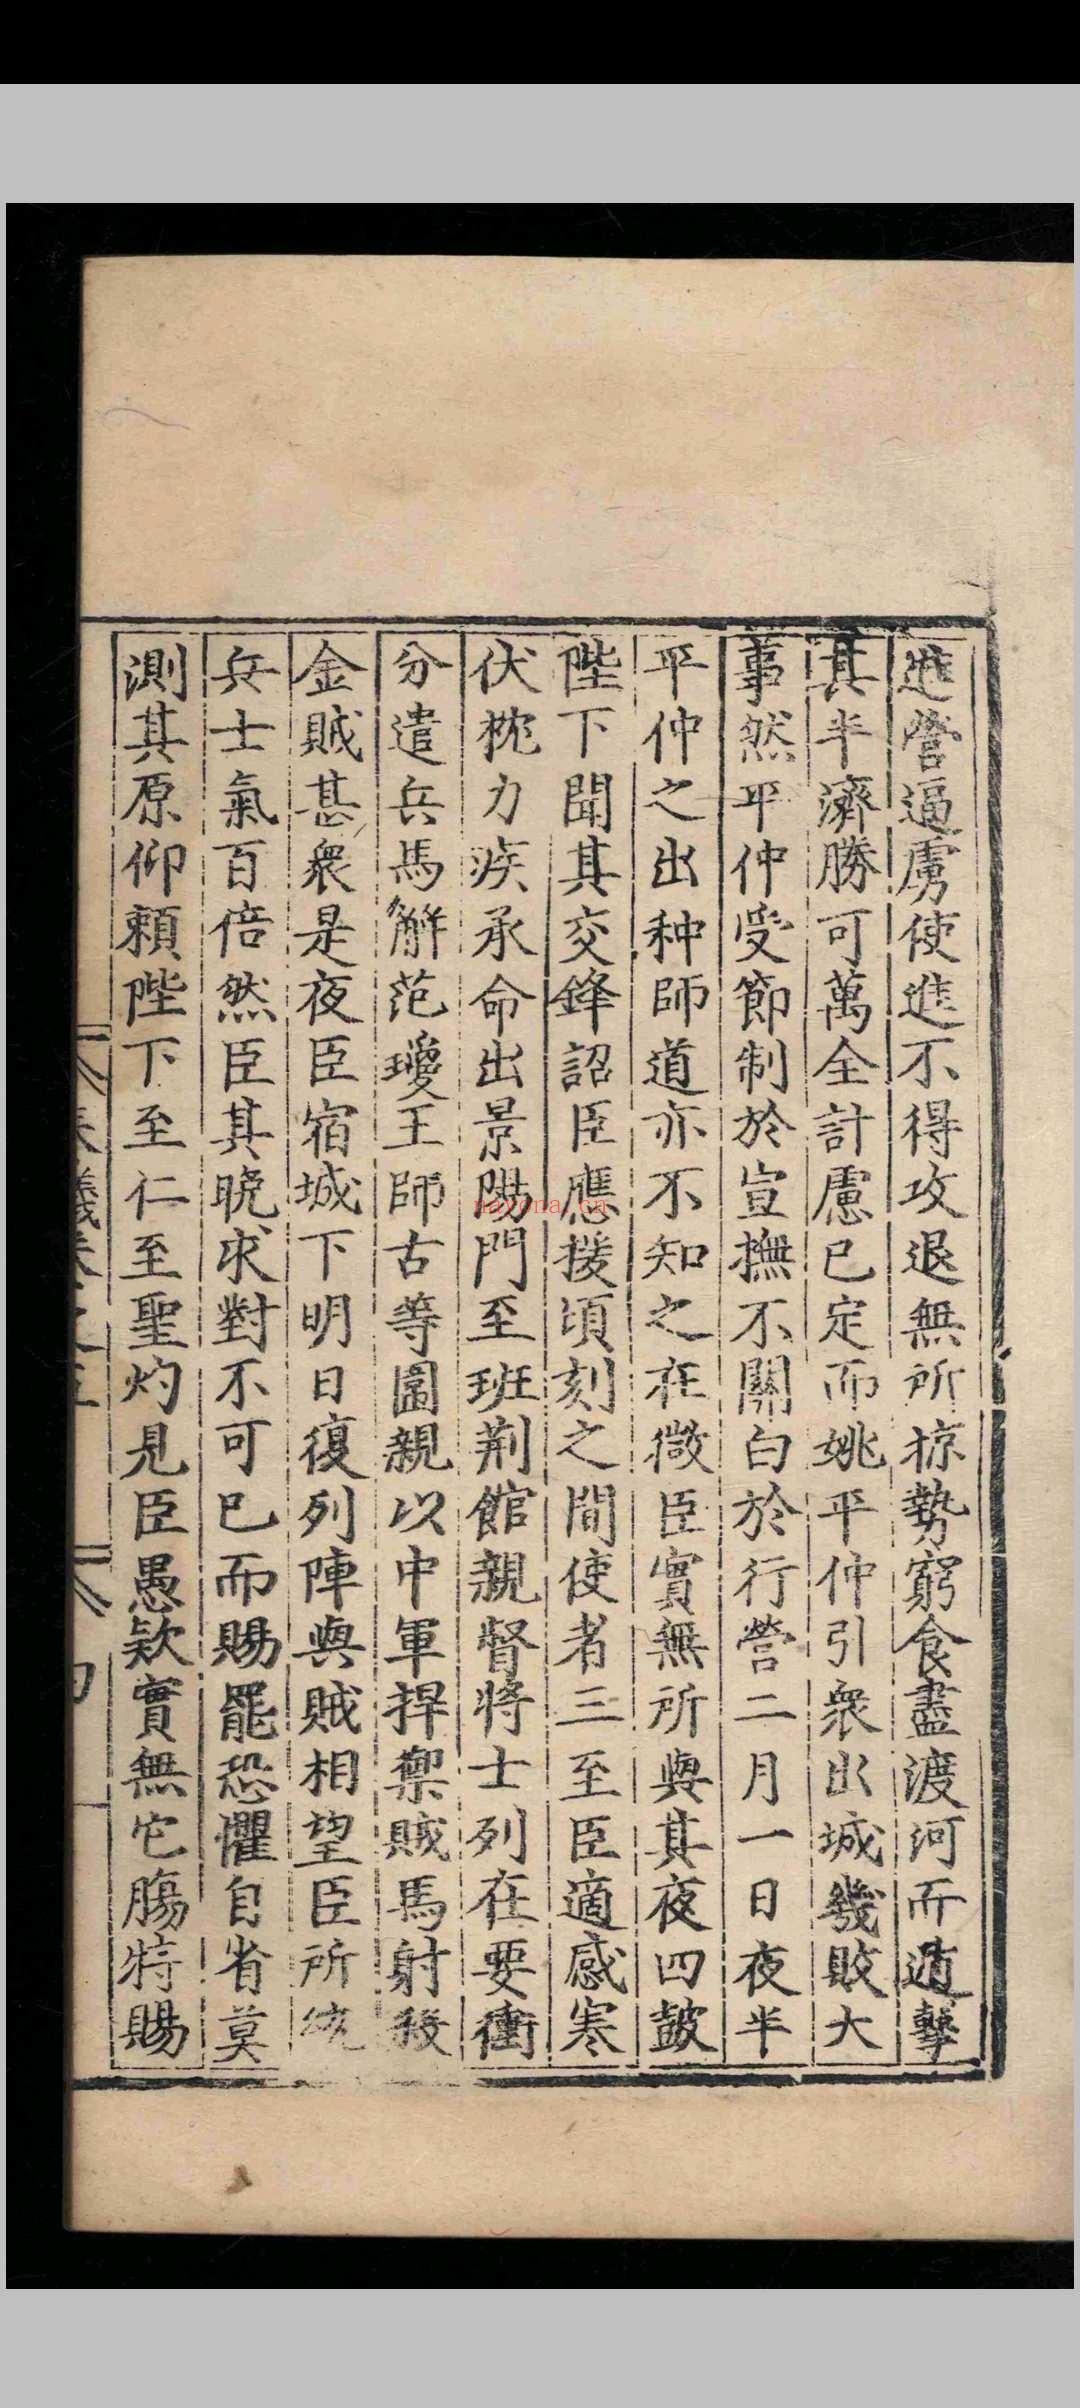 進營逼虜使進不得攻退無所掠勢窮食盡渡河而遁擊
其半濟勝可萬全計慮已定而姚平仲引衆出城幾敗大
事然平仲受節制於宣撫不關白於行營二月一日夜半
平仲之出种師道亦不知之在微臣實無所與其夜四鼓
陛下聞其交鋒詔臣應援頃刻之間使者三至臣適感寒
伏枕力疾承命出景陽門至班荆館親督將士列在要衝
分遣兵馬解范瓊王師古等圍親以中軍捍禦賊馬射殺
金賊甚衆是夜臣宿城下明日復列陣與賊相望臣所統
兵士氣百倍然臣其晚求對不可已而賜罷恐懼自省莫
測其原仰賴陛下至仁至聖灼見臣愚欵實無它腸特賜
nayona.cn